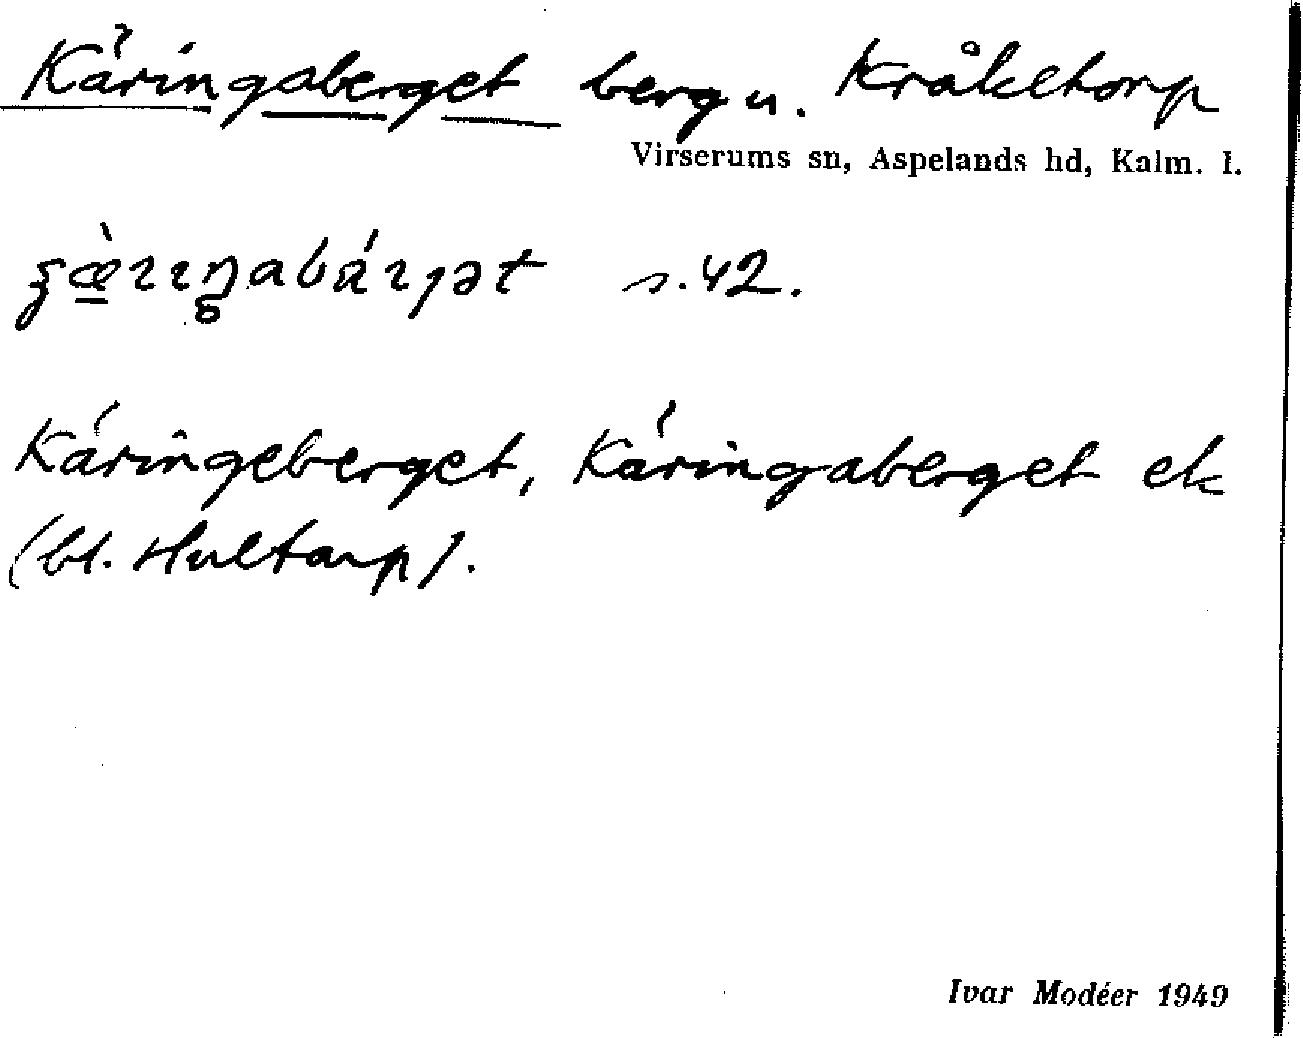 Käringaberget berg u. Kråketorp
Virserums sn, Aspelands hd, Kalm. l.
s. 42.
Käringeberget, Käringaberget ek
(bl. Hultarp).
Ivar Modéer 1949